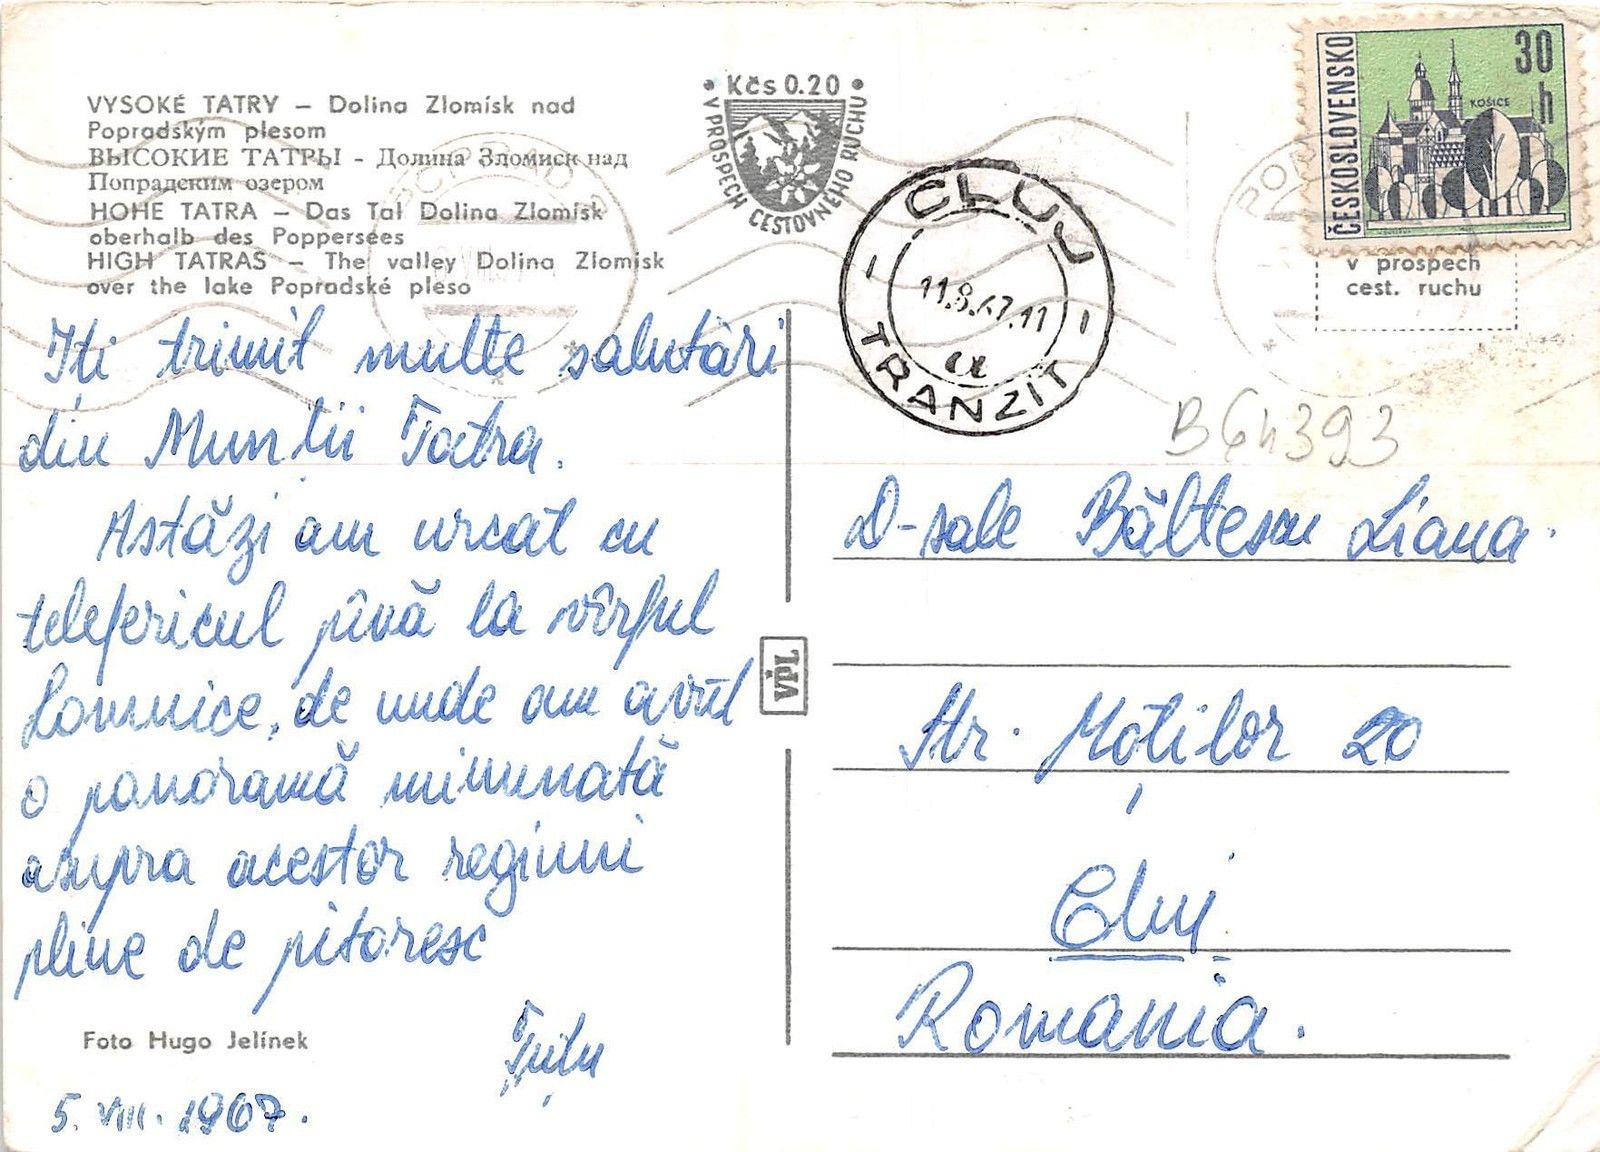 VYSOKÉ TATRY – Dolina Zlomísk nad
Popradským plesom
ВЫСОКИЕ ТАТРЫ - Долина Зломиск над
Попрадским озером
HOHE TATRA – Das Tal Dolina Zlomísk
oberhalb des Poppersees
HIGH TATRAS – The valley Dolina Zlomísk
over the lake Popradské pleso
Iti trimit multe salutări
din Muntii Tatra.
Astăzi am urcat cu
telefericul pînă la vîrful
Lomnice, de unde am avut
o panoramă minunată
asupra acestor regiuni
pline de pitoresc
Foto Hugo Jelínek
5. VIII. 1967.
VPL
• Kčs 0.20 •
V PROSPECH CESTOVNÉHO RUCHU
CLUJ
11.8.67.11
a
TRANZIT
ČESKOSLOVENSKO
30
h
KOŠICE
v prospech
cest. ruchu
B 64393
D-sale Băltescu Liana.
Str. Moților 20
Cluj
Romania.